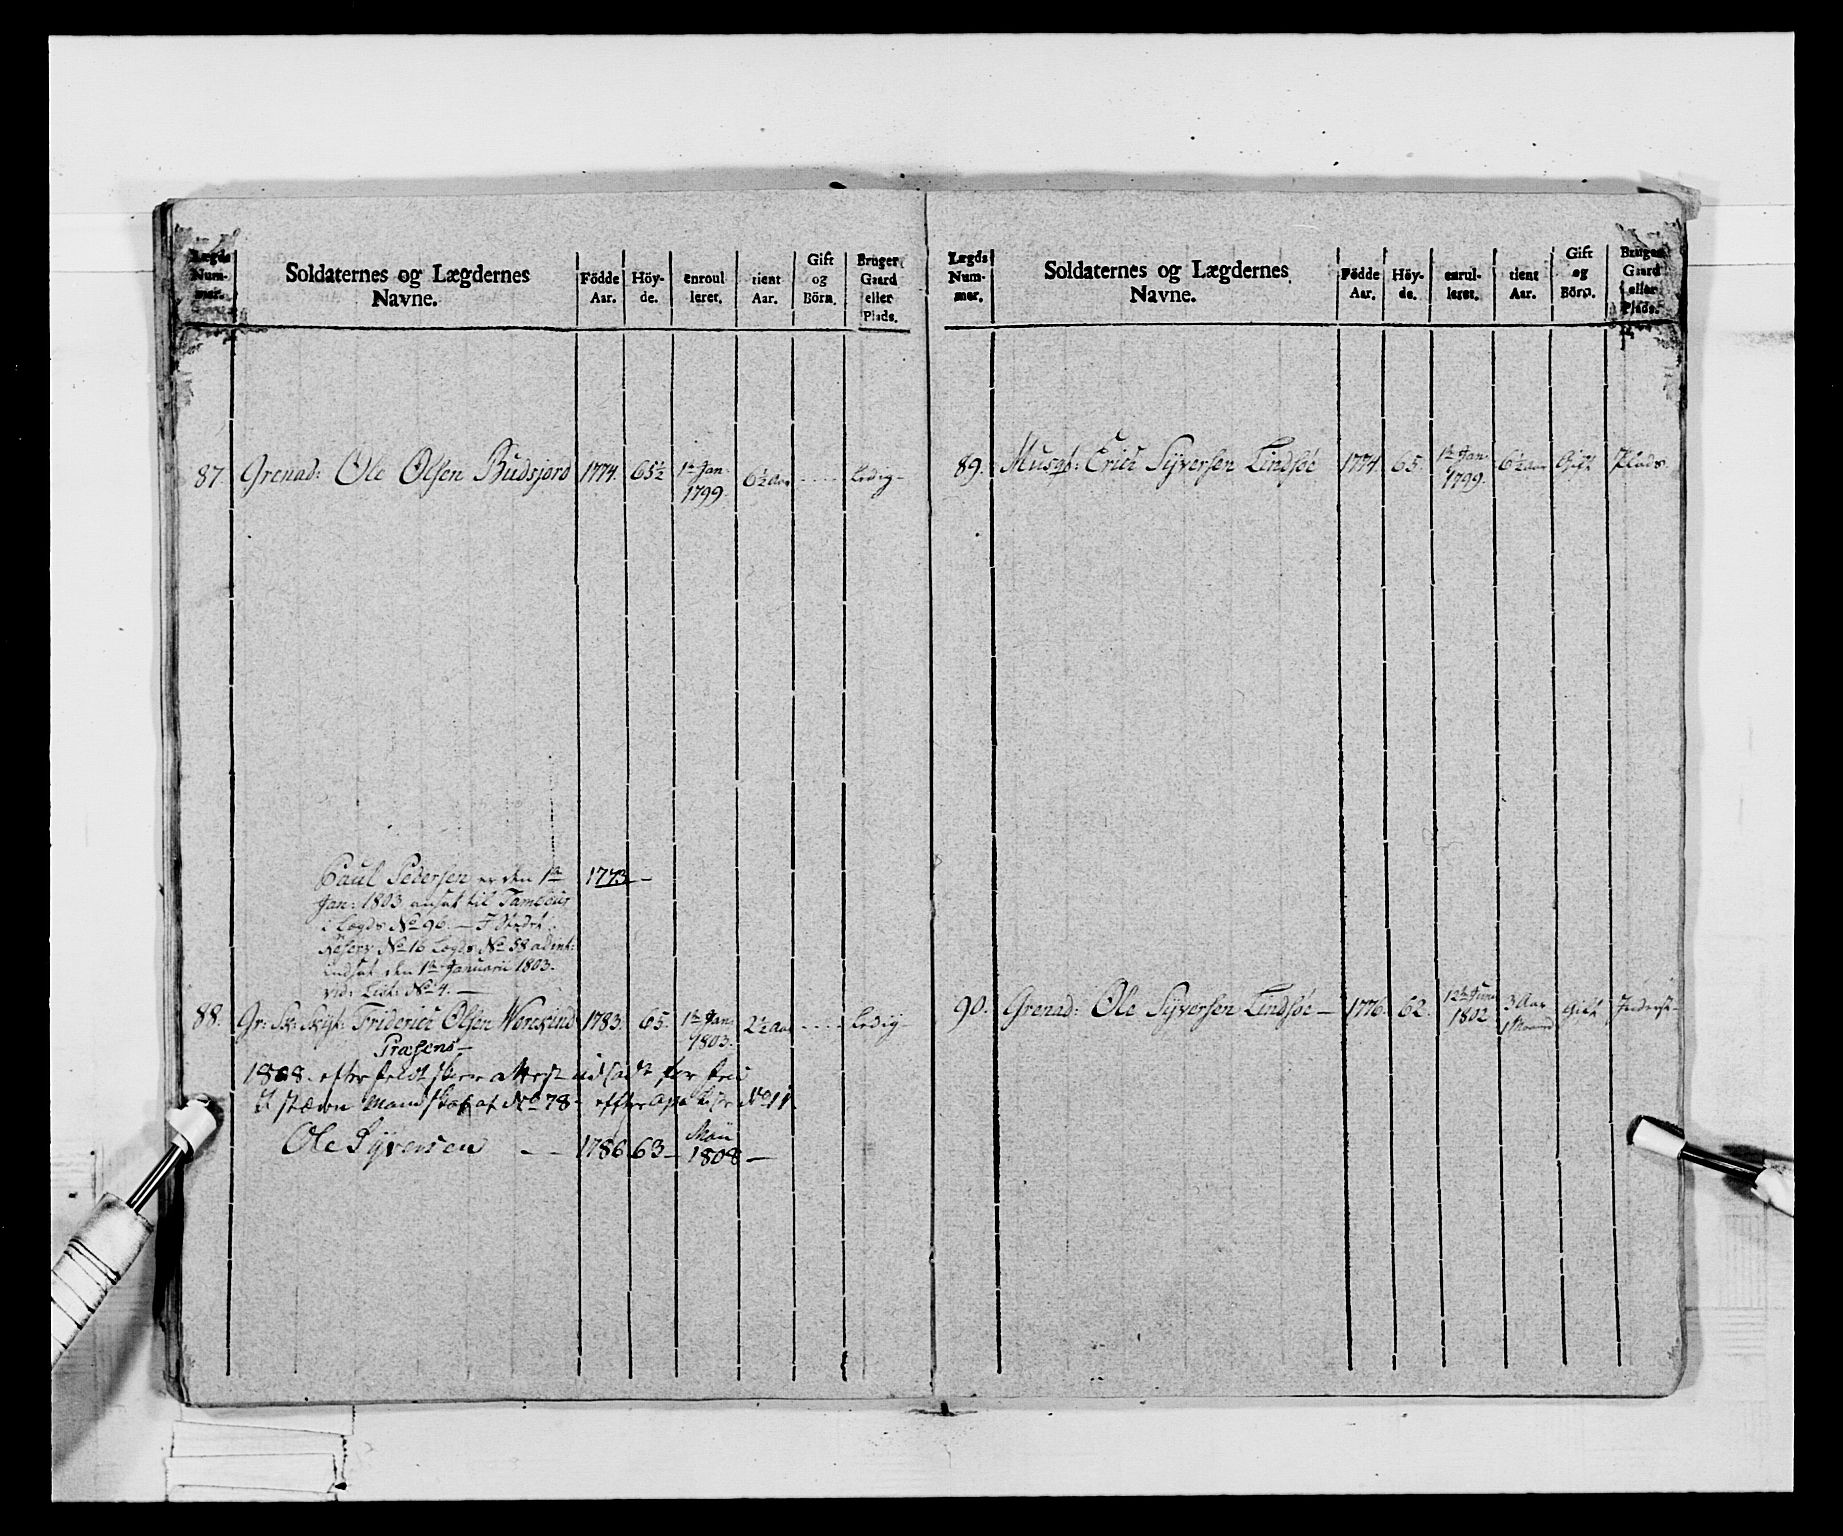 Lægds Num- mer.
Soldaternes og Lægdernes Navne.
Födde Aar.
Höy- de.
enroul leret.
tient Aar.
Gift og Börn.
Bruger Gaard eller Plads.
87. Grenad: Ole Olsen Budsjord 1774. 65½ 1te Jan: 1799. 6½ Aar - - - - Ledig -
Paul Pedersen er den 1te 1773 -
Jan: 1803 ansat til Tambour
i Lægds No 96. -
Reserv No 16 Lægds No 58
indsat den 1te Januarii 1803.
vid: List: No 4. -
88. Gr: Sk: Skyt: Friderich Olsen 1783. 65. 1te Jan: 1803. 2½ Aar - - - - Ledig
Præsens -
1808. efter attest udsadt for
Mandskab af No 78 - efter No 11
Ole Syversen - - 1786 63 - Maii 1808 -
Lægds Num- mer.
Soldaternes og Lægdernes Navne.
Födde Aar.
Höy- de.
enrul- leret.
tient Aar.
Gift og Börn.
Bruger Gaard eller Plads.
89. Musqt: Erich Syversen Lindsøe 1774. 65. 1te Jan: 1799. 6½ Aar Gift Plads.
90. Grenad: Ole Syversen Lindsøe - 1776. 62. 12te Juni 1802 3 Aar 1 Maaned Gift Inderst -